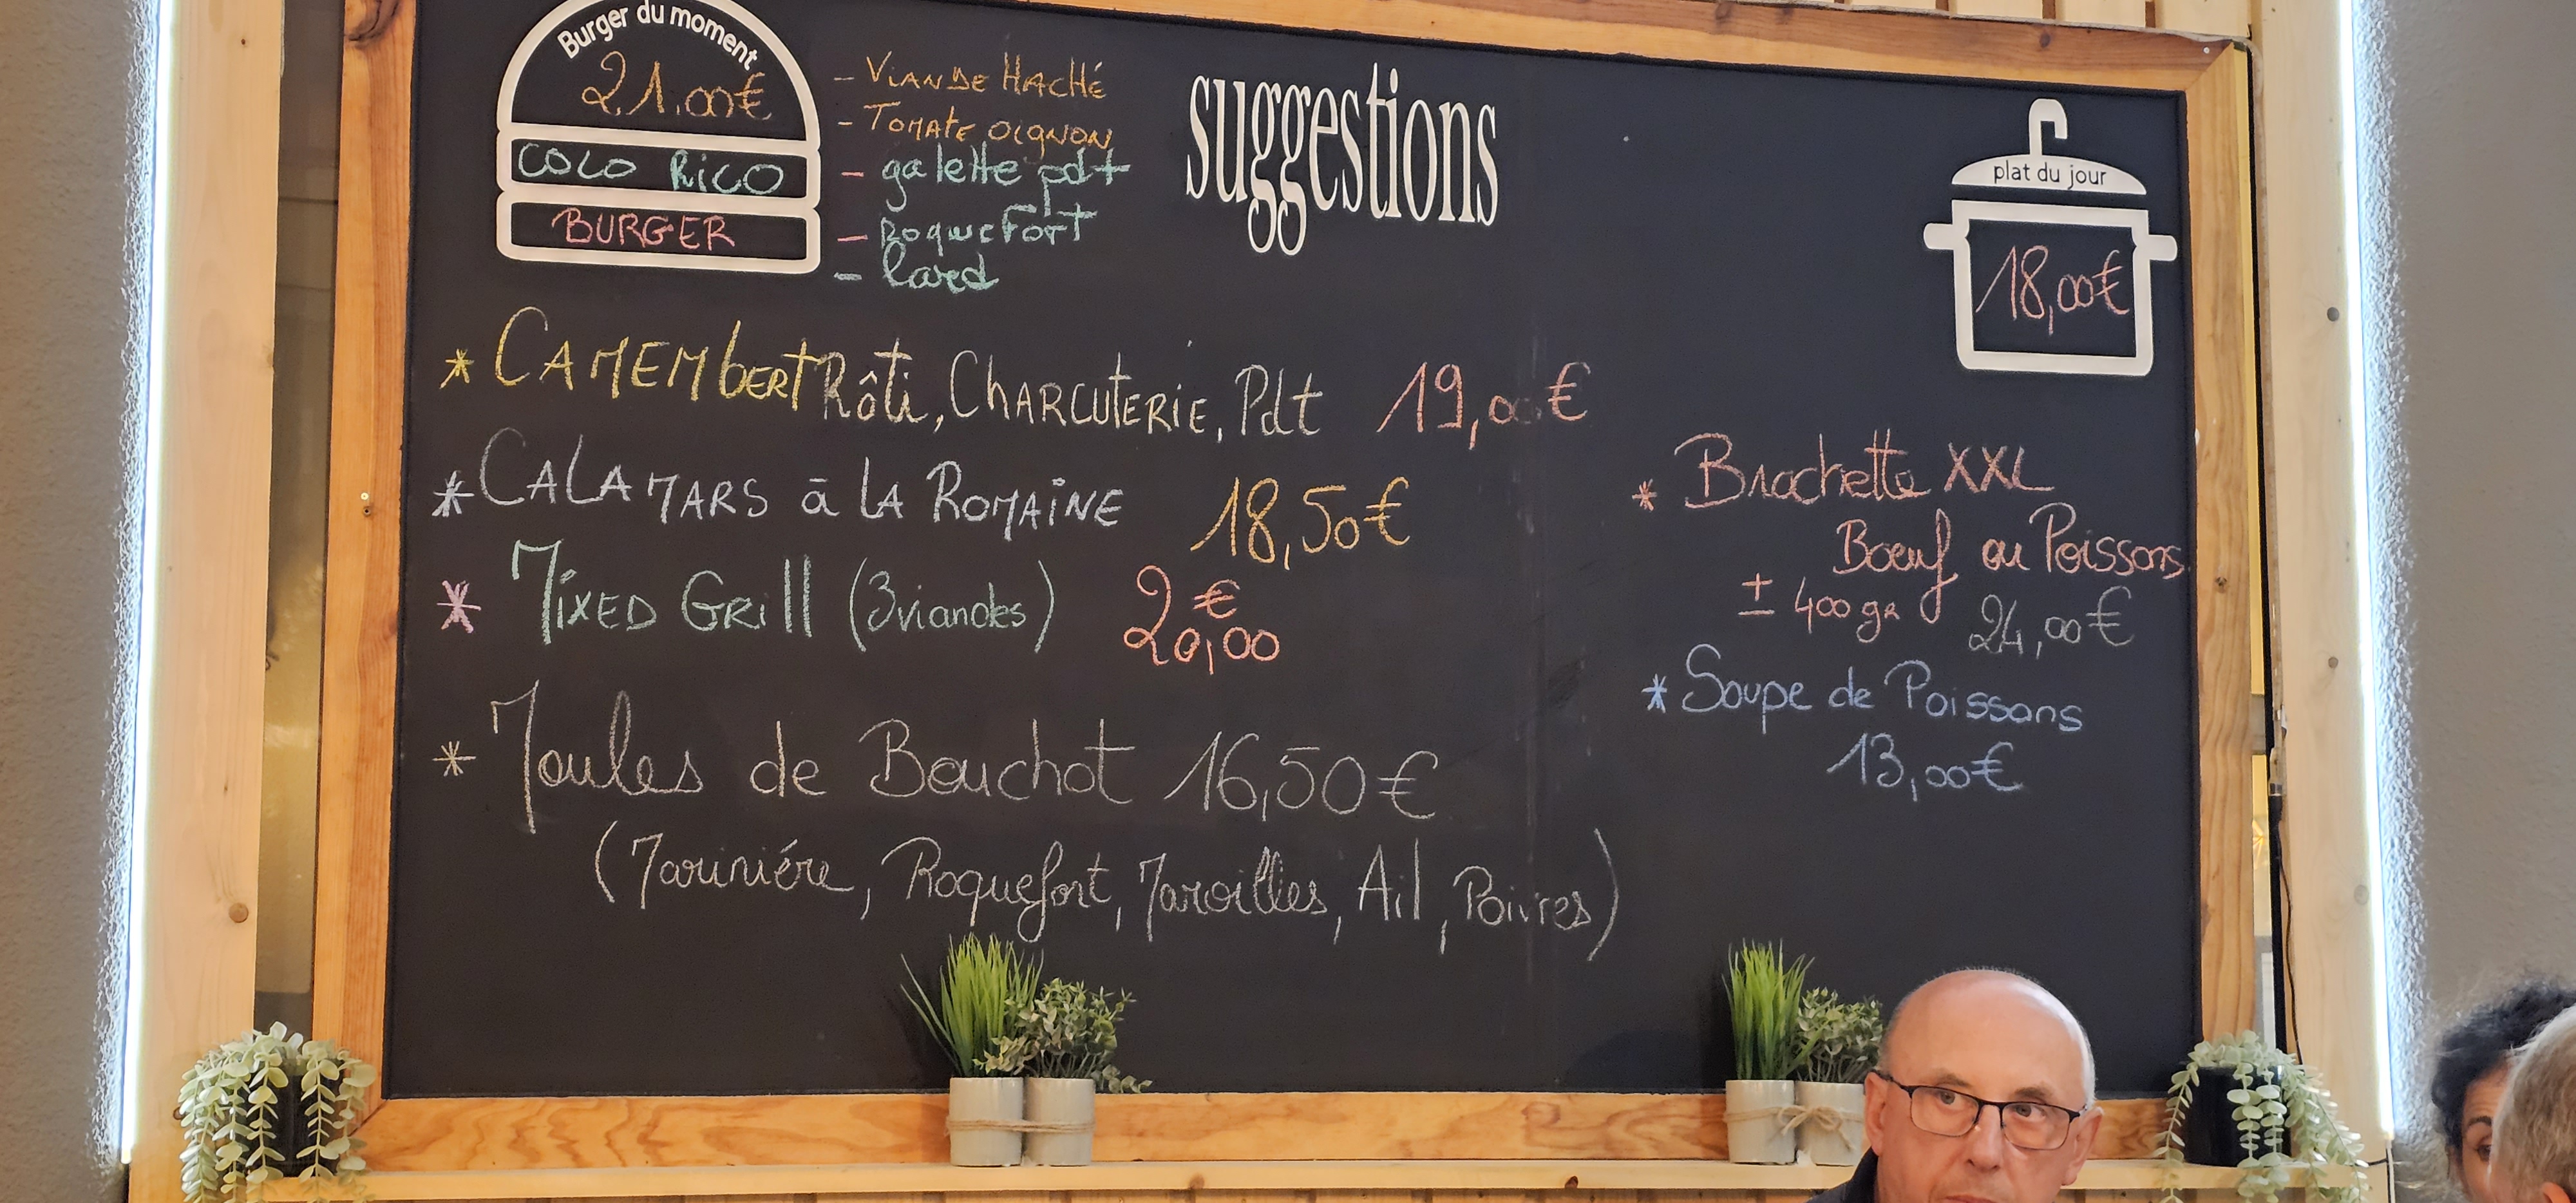 Burger du moment
21.00€
COCO RiCO
BURGER
- VIANDE HACHÉ
- TOMATE OIGNON
- galette pdt
- RoqueFort
- lard
suggestions
plat du jour
18,00€
* CAMEMbERT Rôti, CHARCUTERIE, Pdt 19,00€
* CALAMARS à LA ROMAiNE 18,50€
* MiXED GRill (3 viandes) 20,00 €
* Moules de Bouchot 16,50€
(Mariniére, Roquefort, Maroilles, Ail, Poivres)
* Brochette XXL
Boeuf ou Poissons
± 400 gr 24,00€
* Soupe de Poissons
13,00€